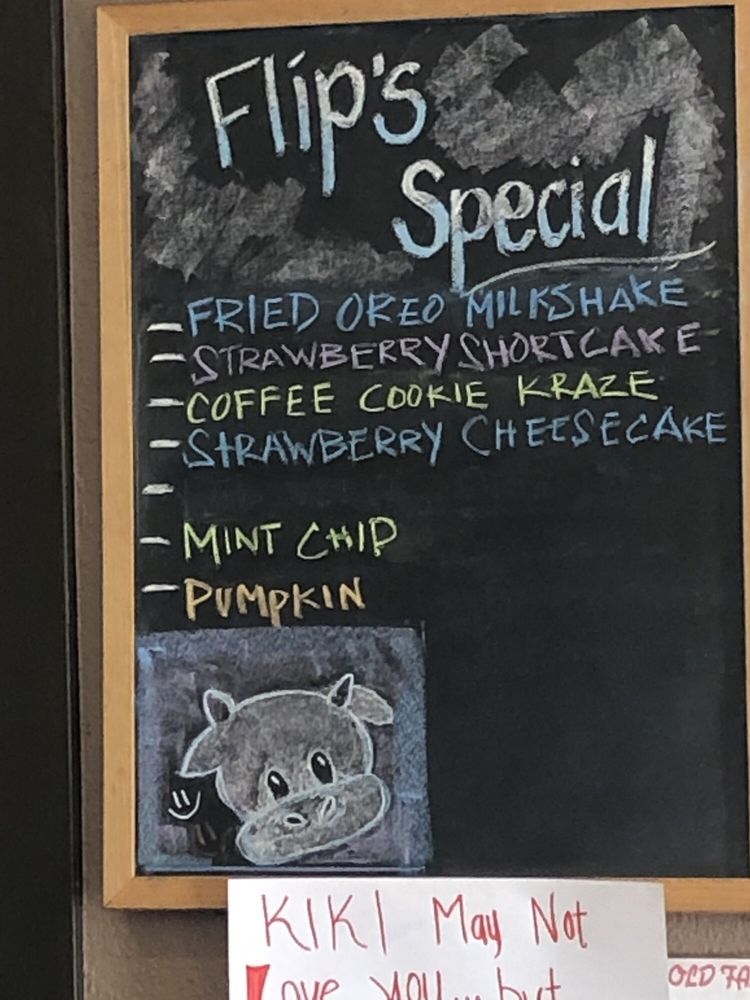 Flip's
Special
- FRIED OREO MILKSHAKE
- STRAWBERRY SHORTCAKE
- COFFEE COOKIE KRAZE
- STRAWBERRY CHEESECAKE
-
- MINT CHIP
- PUMPKIN
KIKI May Not
Love you... but
OLD